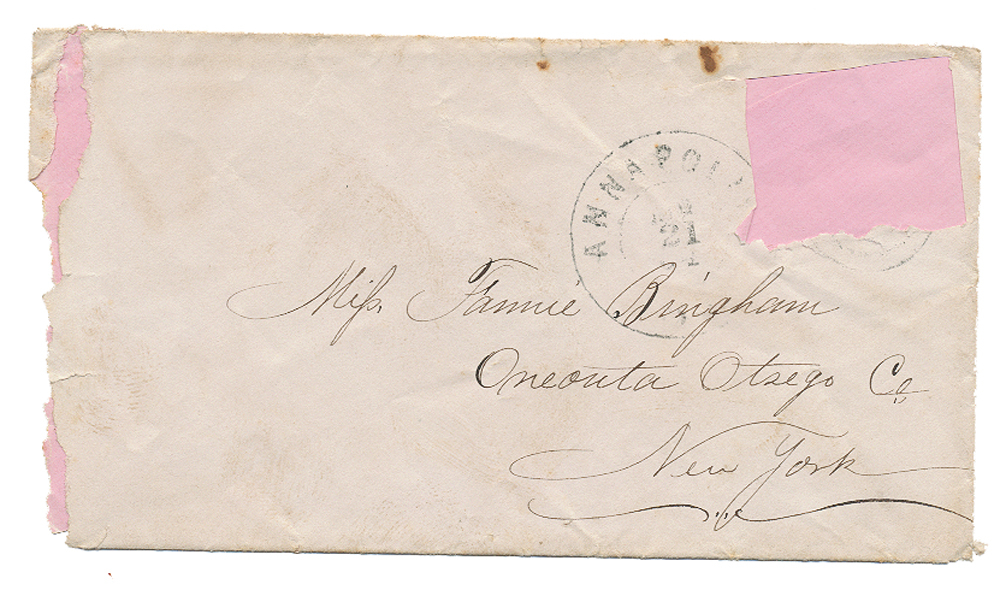 ANNAPOLI
21
Miss Fannie Bingham
Oneonta Otsego Co
New York